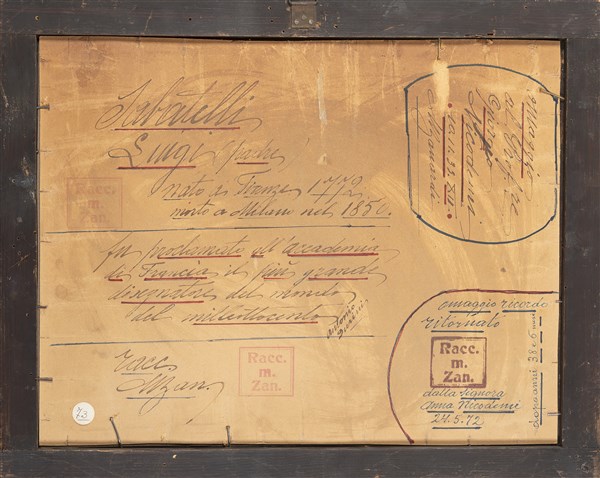 Sabatelli
Luigi padre
nato a Firenze 1772
morto a Milano nel 1850.
fu proclamato all'accademia
di Francia il più grande
disegnatore del mondo
del milleottocento
Antonio
Racc.
m.
Zan.
racc.
MZan
Racc.
m.
Zan.
73
omaggio
al
Giorgio
Nicodemi
omaggio ricordo
ritornato
Racc.
m.
Zan.
dalla Signora
Anna Nicodemi
24.5.72
dopo anni 38 e 6 mesi